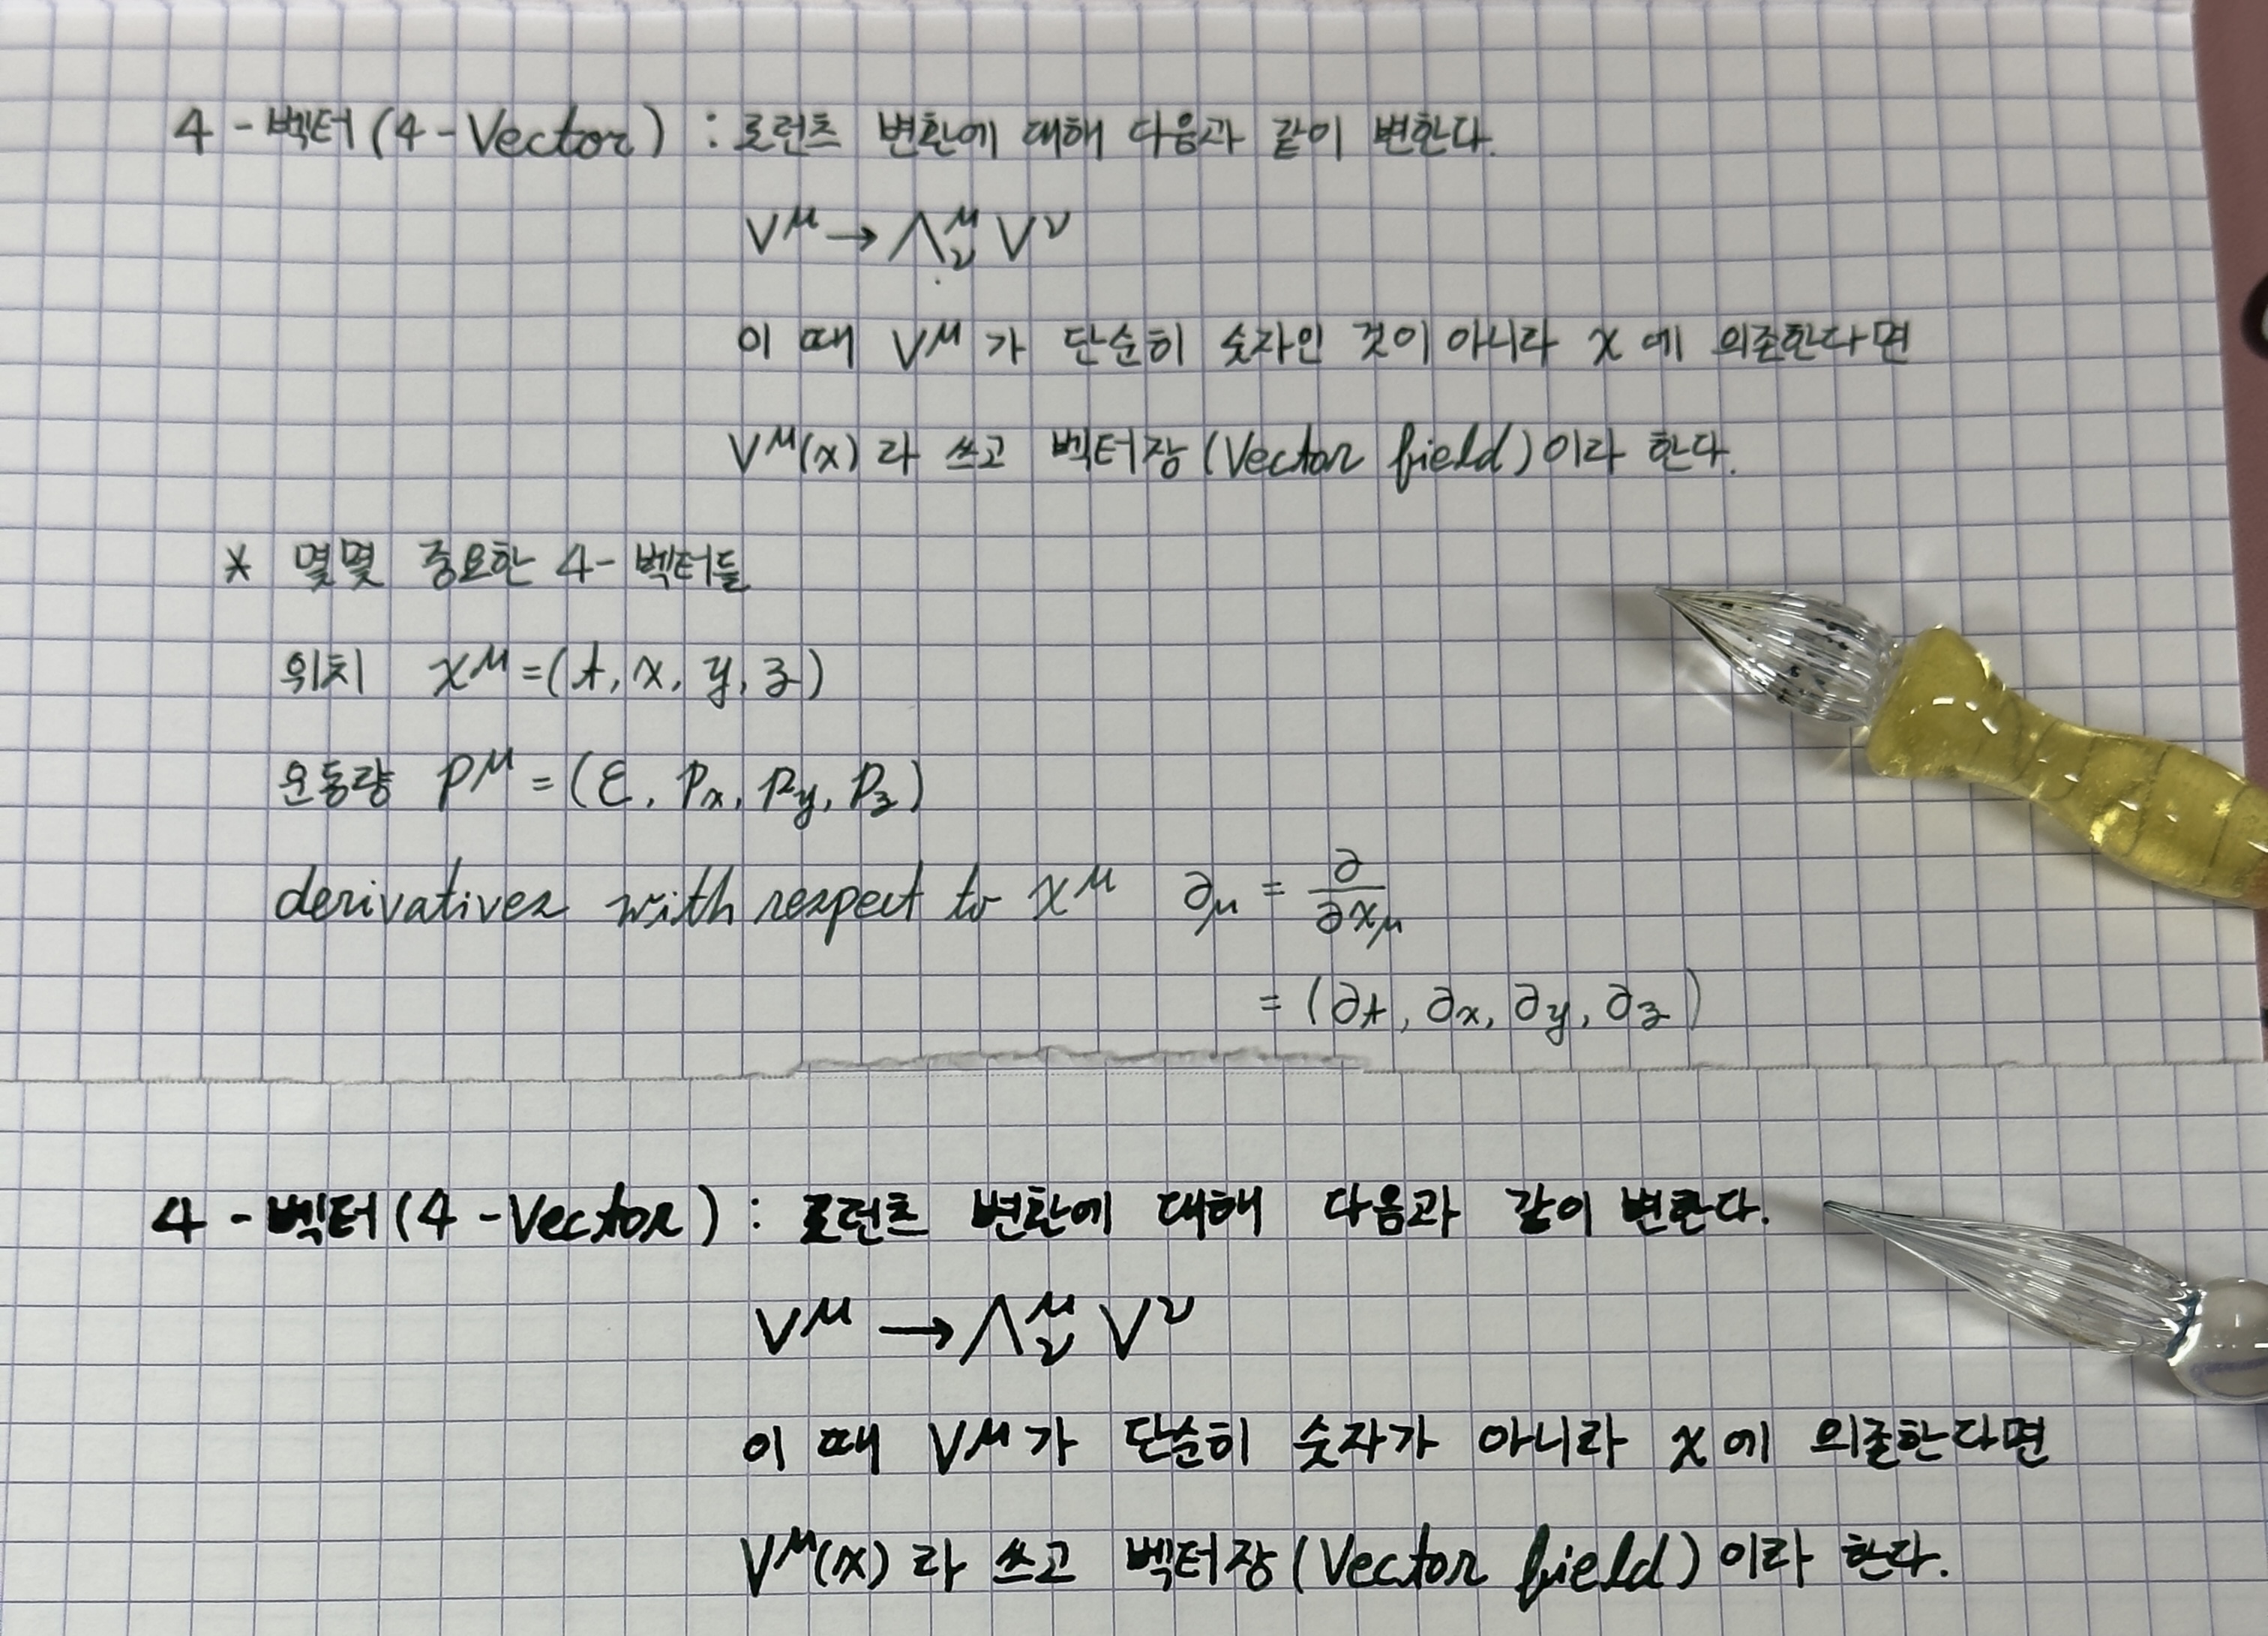 4-벡터(4-Vector) : 로런츠 변환에 대해 다음과 같이 변한다.
V^μ → Λ^μ_ν V^ν
이 때 V^μ가 단순히 숫자인 것이 아니라 x에 의존한다면
V^μ(x)라 쓰고 벡터장(Vector field)이라 한다.
* 몇몇 중요한 4-벡터들
위치 x^μ = (t, x, y, z)
운동량 p^μ = (E, p_x, p_y, p_z)
derivatives with respect to x^μ ∂_μ = ∂/∂x_μ
= (∂t, ∂x, ∂y, ∂z)
4-벡터(4-Vector) : 로런츠 변환에 대해 다음과 같이 변환다.
V^μ → Λ^μ_ν V^ν
이 때 V^μ가 단순히 숫자가 아니라 x에 의존한다면
V^μ(x)라 쓰고 벡터장(Vector field)이라 한다.